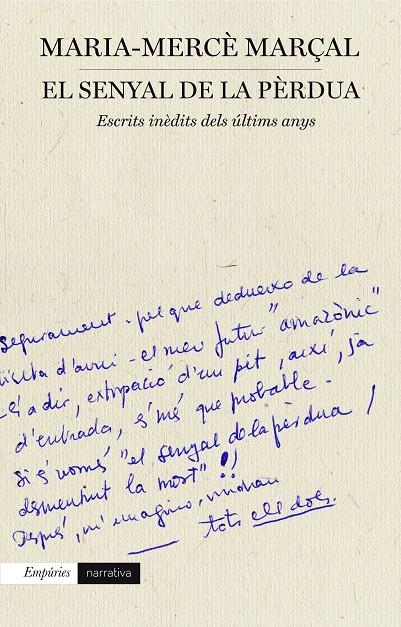 MARIA-MERCÈ MARÇAL
EL SENYAL DE LA PÈRDUA
Escrits inèdits dels últims anys
Segurament - pel que dedueixo de la
visita d'avui - el meu futur "amazònic"
- és a dir, extirpació d'un pit, així, ja
d'entrada, és més que probable -
Si és només "el senyal de la pèrdua /
desmentint la mort" !!
Després, m'imagino, vindran
tots ells dols.
Empúries narrativa